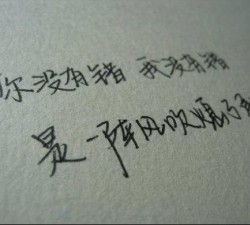 你没有错 我没有错
是一阵风吹熄了